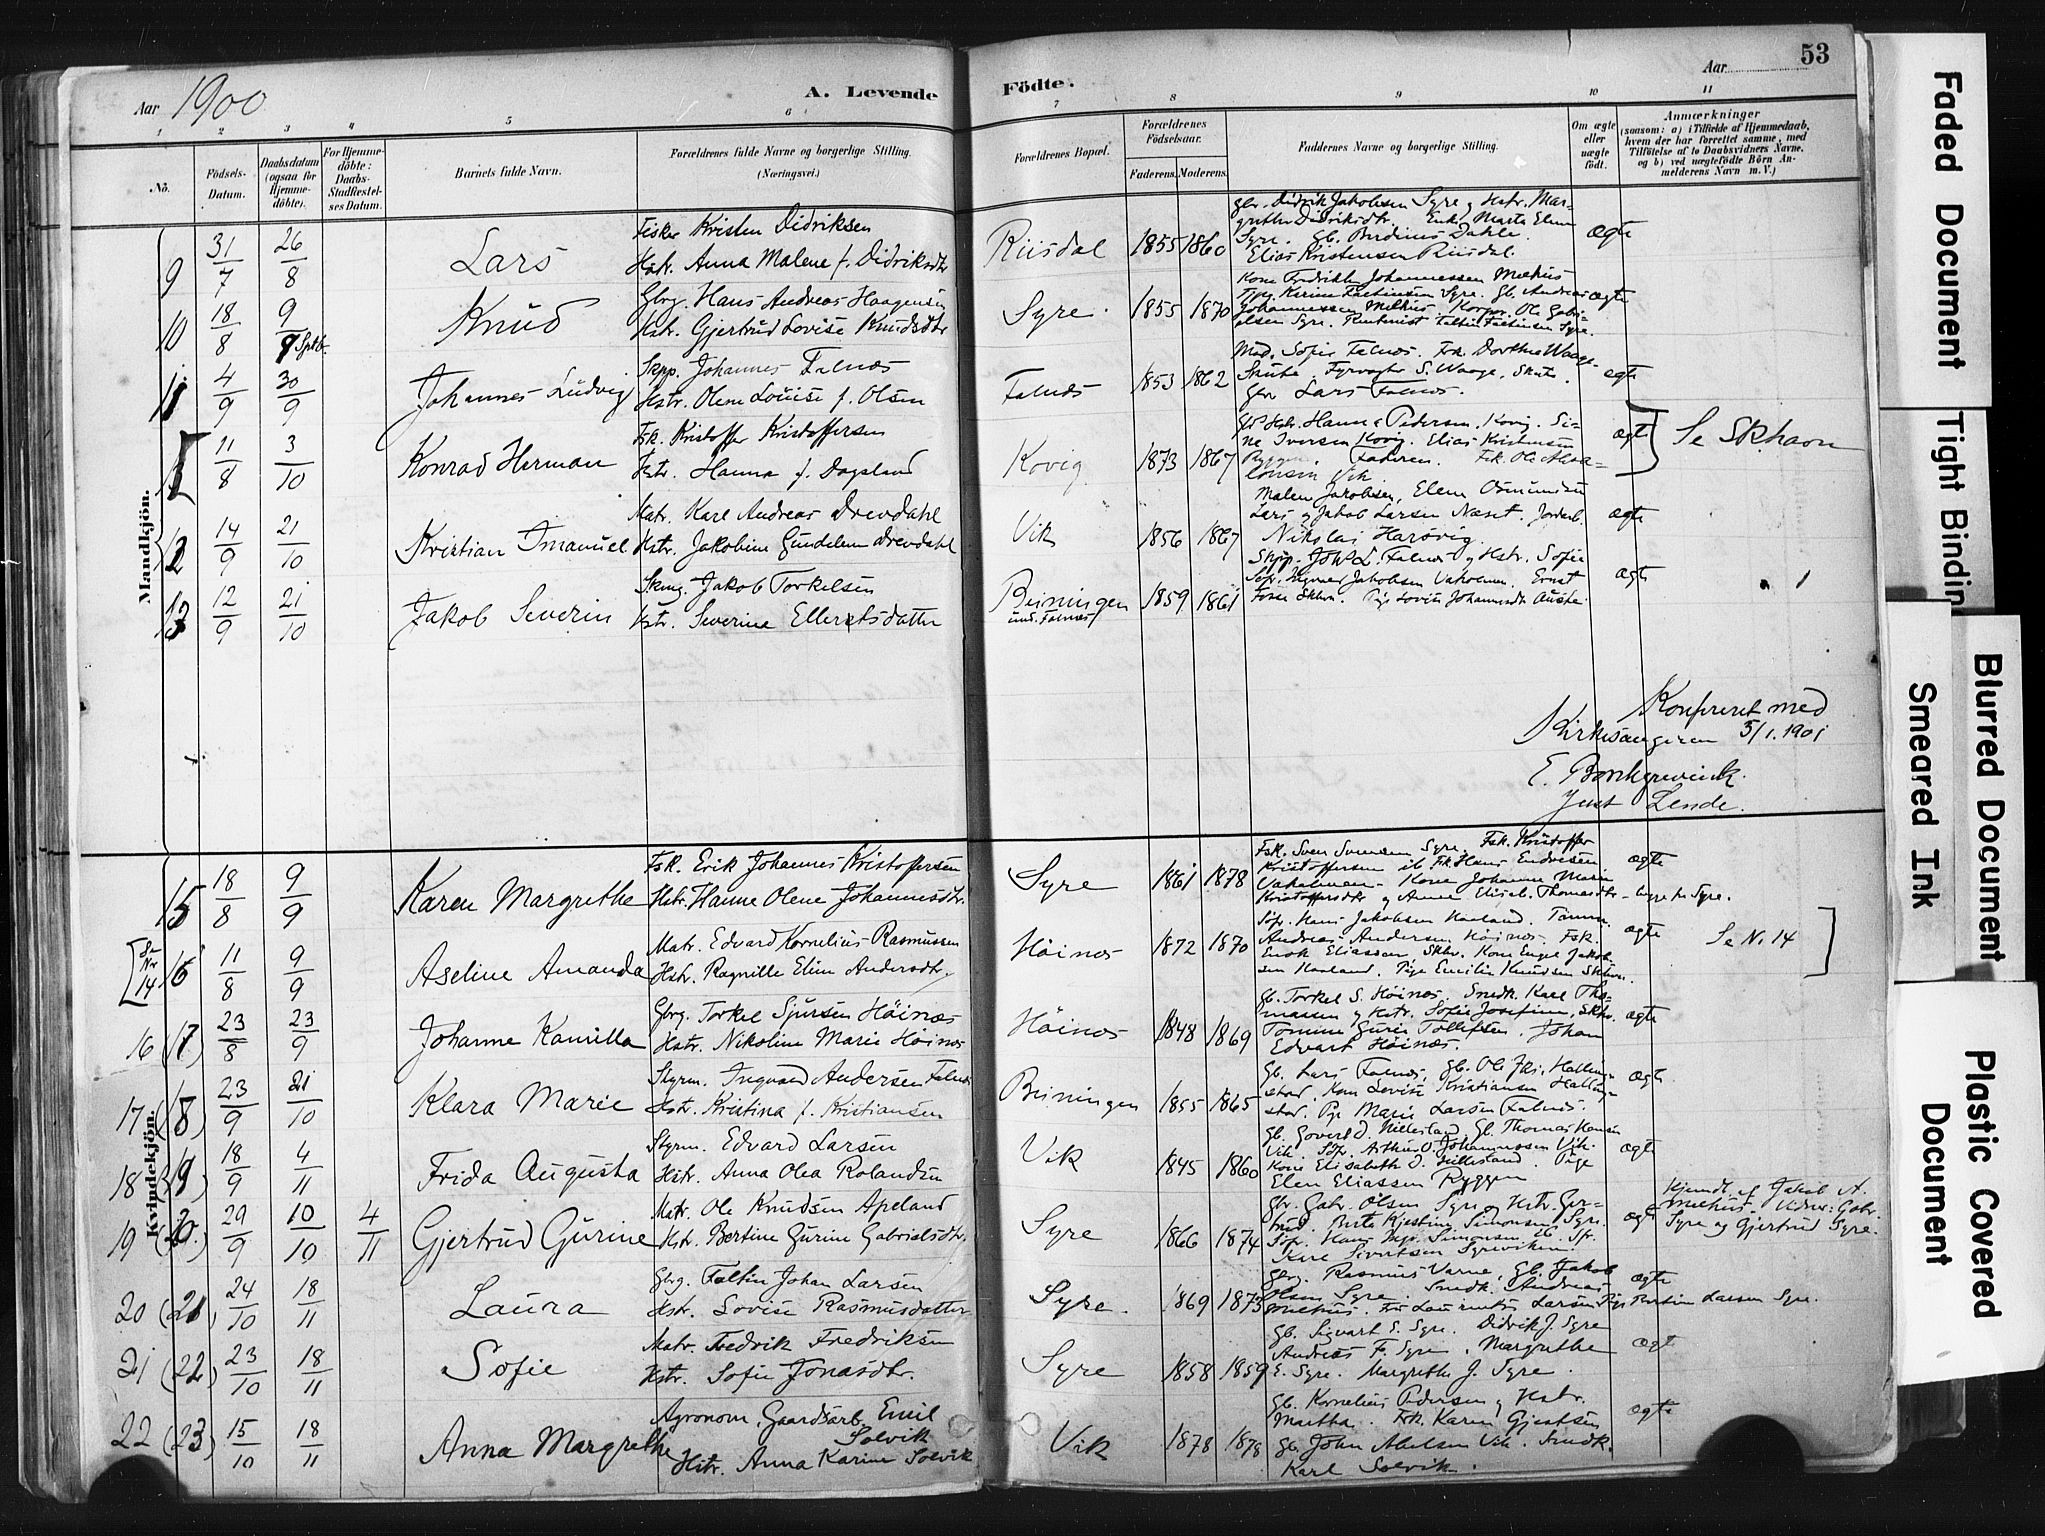 Aar 1900
A. Levende Födte.
Aar
53
1 2 3 4 5 6 7 8 9 10 11
Nö.
Födsels-Datum.
Daabsdatum (ogsaa for Hjemme-döbte).
For Hjemme-döbte: Daabs-Stadfæstel-ses Datum.
Barnets fulde Navn.
Forældrenes fulde Navne og borgerlige Stilling. (Næringsvei.)
Forældrenes Bopæl.
Forældrenes Födselsaar.
Faderens. Moderens.
Faddernes Navne og borgerlige Stilling.
Om ægte eller uægte födt.
Anmærkninger
(saasom: a) i Tilfælde af Hjemmedaab, hvem der har forrettet samme, med Tilföielse af to Daabsvidners Navne, og b) ved uægtefödte Börn An-melderens Navn m. V.)
Mandkjön.
9 31/7 26/8 Lars
Fisker Kristen Didriksen
Hstr. Anna Malene f. Didriksdtr
Riisdal 1855 1860
Gbr. Didrik Jakobsen Syre og Hstr. Mar-
grethe Didriksdtr. Enke Marta Elene
Syre. Gb. Berdinus Dahle.
Elias Kristensen Riisdal.
ægte
10 18/8 9/9 Sptb. Knud
Gbrg. Hans Andreas Haagensen
Hstr. Gjertrud Lovise Knudsdtr
Syre. 1855 1870
Kone Fredrikke Johannessen Mækus
Syre. Gb. Andreas
Johannessen
olsen Syre.
ægte
11 4/9 30/9 Johannes Ludvig
Skpp. Johannes Falnæs
Hstr. Olene Louise f. Olsen
Falnæs 1853 1862
Mad. Sofie Falnæs. Frk. Dorthea Waage
Skude. Fyrvogter S. Waage, Skude.
Gbr Lars Falnæs.
ægte
11/8 3/10 Konrad Herman
Fsk. Kristoffer Kristoffersen
Hstr. Hanna f. Dagsland
Kovig 1873 1867
Hanne Pedersen, Kovig. Si-
ne Iversen Kovig. Elias Kristensen
Ryggen. Faderen. Fsk. Ole
Vik
ægte
Se Skhavn
12 14/9 21/10 Kristian Imanuel
Matr. Karl Andreas Drevdahl
Hstr. Jakobine Gundelene Drevdahl
Vik 1856 1867
Malene Jakobsen, Elene Osmundsen
Lars og Jakob Larsen Næset. Jordarb.
Nikolai Harøvig.
ægte
13 12/9 21/10 Jakob Severin
Jakob Torkelsen
Hstr. Severine Ellertsdatter
Beiningen und. Falnæs 1859 1861
Skpp. Joh. L. Falnæs og Hstr. Sofie
Søf. Ingvald Jakobsen Vakelmen. Ernst
Fosse Skhvn. Pige Lovise
ægte
Konfereret med
Kirkesangeren 5/1. 1901
E. Borchgrevinck.
Just Lende.
Kvindekjön.
15 18/8 9/9 Karen Margrethe
Fsk. Erik Johannes Kristoffersen
Hstr. Hanne Olene Johannesdtr.
Syre 1861 1878
Fsk. Sven Svensen Syre. Fsk. Kristoffer
Kristoffersen ib. Fsk. Hans Endresen
Vakelmen. Kone Johanne Marie
Kristoffersdtr og Anne Elisab. Thomasdtr – begge fr. Syre.
ægte
[Se Nr 14 16 11/8 9/9 Aseline Amanda
Matr. Edvard Kornelius Rasmussen
Hstr. Ragnille Eline Andersdtr.
Höinæs 1872 1870
Søf. Hans Jakobsen Haaland. Tømm.
Andreas Andersen Höinæs. Fsk.
Enok Eliassen, Skhvn. Kone Engel Jakob-
sen Haaland. Pige Emilie Knudsen Skhvn.
ægte
Se N. 14 ]
16 (17) 23/8 23/9 Johanne Kamilla
Gbrg. Torkel Sjursen Höinæs
Hstr. Nikoline Marie Höinæs
Höinæs 1848 1869
Gb. Torkel S. Höinæs. Snedk. Karl Tho-
massen og Hstr. Sofie Josefine, Skhv.
Tomine Gurie Tollefsen. Johan
Edvart Höinæs.
ægte
17 (18) 23/9 21/10 Klara Marie
Styrm. Ingvald Andersen Falnæs
Hstr. Kristina f. Kristiansen
Beiningen 1855 1865
Gb. Lars Falnæs, Gb. Ole Halling-
stad. Kone Lovise Kristiansen Halling-
stad. Pige Marie Larsen Falnæs.
ægte
18 (19) 18/9 4/11 Frida Augusta
Styrm. Edvard Larsen
Hstr. Anna Olea Rolandsen
Vik 1845 1860
Gb. Govert D. Hillesland. Gb. Thomas Hansen
Vik. Johannessen Vik.
Kone Elisabeth D. Hillesland. Pige
Elen Eliassen Ryggen
ægte
19 (20) 29/9 10/10 4/11 Gjertrud Gurine
Matr. Ole Knudsen Apeland
Hstr. Bertine Gurine Gabrielsdtr.
Syre 1866 1874
Gbr. Gabr. Olsen Syre og Hstr. Ger-
trud. Berte Kjestine Simonsen, Syre.
Søf. Hans Simonsen ib.
Sivertsen Syrevikene.
ægte
Hjemdt af Jakob A.
Mækus. Vidner: Gabr.
Syre og Gjertrud Syre.
20 (21) 24/10 18/11 Laura
Gbrg. Faltin Johan Larsen
Hstr. Lovise Rasmusdatter
Syre. 1869 1873
Gbrg. Rasmus Varne, Gb. Jakob
Olsen Syre. Snedk. Andreas
Mækus. Larsen Pige Bertine Larsen Syre.
ægte
21 (22) 23/10 18/11 Sofie
Matr. Fredrik Fredriksen
Hstr. Sofie Jonasdtr.
Syre 1858 1859
Gb. Sigvart E. Syre. Didrik J. Syre
Andreas F. Syre, Margrethe
E. Syre. Margrethe J. Syre.
ægt
22 (23) 15/10 18/11 Anna Margrethe
Agronom, Gaardsarb. Emil
Solvik
Hstr. Anna Karine Solvik
Vik 1878 1878
Gb. Kornelius Pedersen og Hstr.
Martha. Frk. Karen Gjertsen
Gb. John Abelsen Vik. Snedk.
Karl Solvik.
ægte
Faded Document
Tight Bindin
Blurred Document
Smeared Ink
Plastic Covered Document